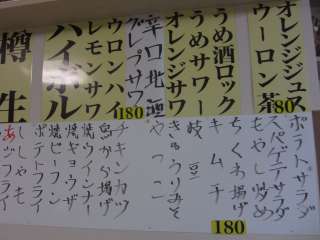 オレンジジュース
ウーロン茶
80
うめ酒ロック
うめサワー
オレンジサワー
グレープサワー
180
ウーロンハイ
レモンサワー
ハイボール
樽生
ポテトサラダ
スパゲテサラダ
もやし炒め
ちくわ揚げ
キムチ
枝豆
きゅうりみそ
やっこ
チキンカツ
鳥から揚げ
焼ウインナー
焼ギョウザ
焼ビーフン
ポテトフライ
ししゃも
あジフライ
180